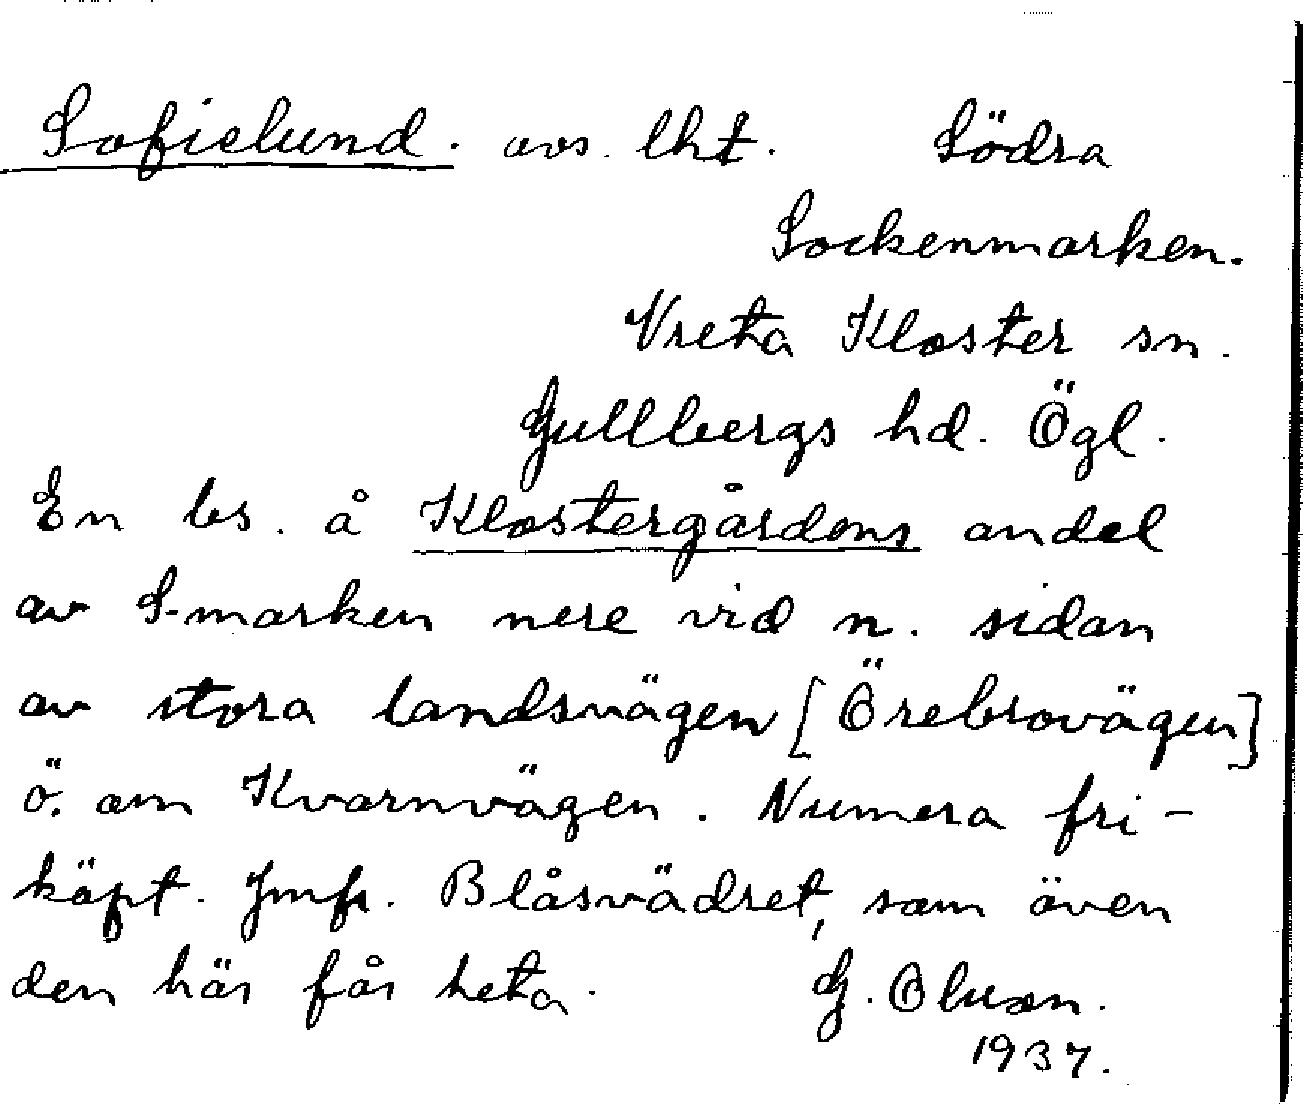 Sofielund. avs. lht. Södra
Sockenmarken.
Vreta Kloster sn.
Gullbergs hd. Ögl.
En bs. å Klostergårdens andel
av S-marken nere vid n. sidan
av stora landsvägen [Örebrovägen]
ö. om Kvarnvägen. Numera fri-
köpt. Jmfr. Blåsvädret, som även
den här får heta. G. Olsson.
1937.